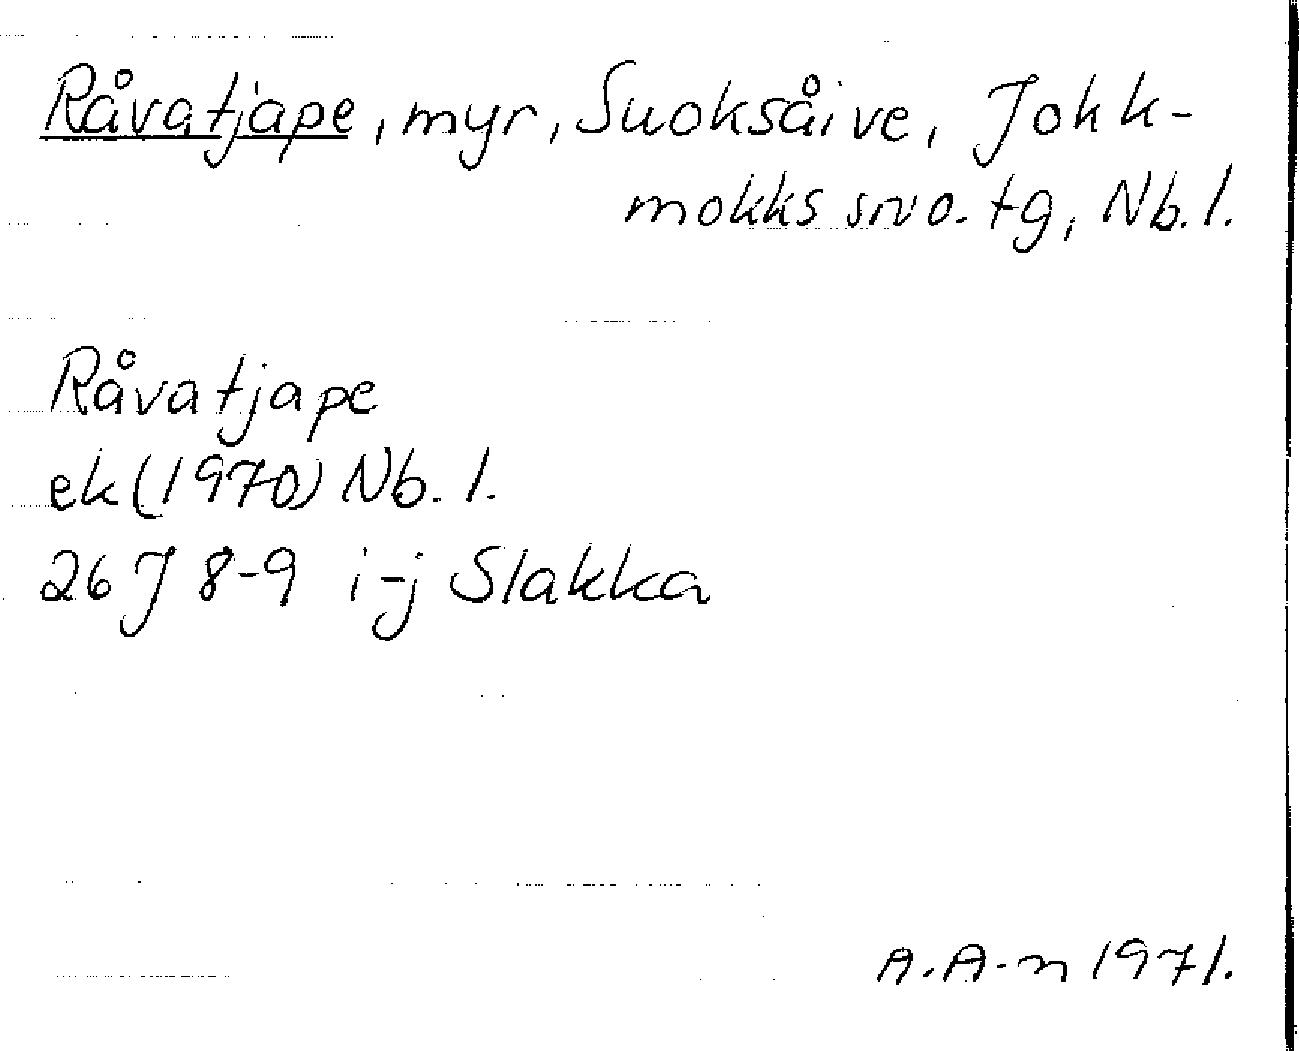 Råvatjape, myr, Suoksåive, Jokk-
mokks snvo. tg, Nb. l.
Råvatjape
ek (1970) Nb. l.
26 J 8-9 i-j Slakka
A. A-n 1971.